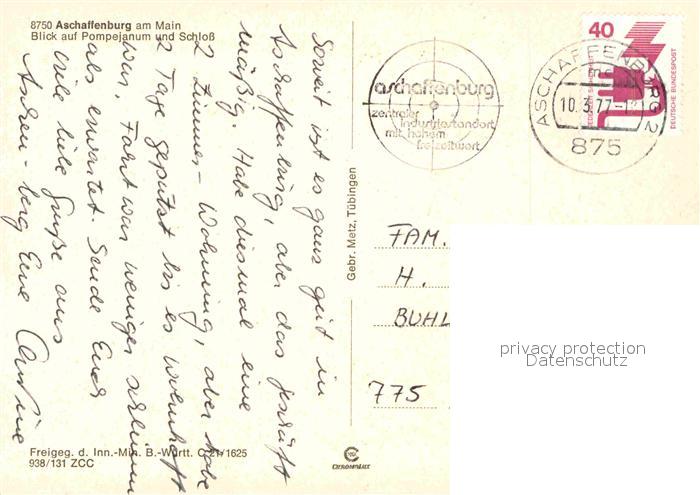 8750 Aschaffenburg am Main
Blick auf Pompejanum und Schloß
Soweit ist es ganz gut in
Aschaffenburg, aber das
mäßig. Habe diesmal eine
2 Zimmer-Wohnung, aber habe
2 Tage geputzt bis es wohnhaft
war. Fahrt war weniger schlimm
als erwartet. Sende Euch
viele liebe Grüße aus
Aschen-berg Eure Christine
Freigeg. d. Inn.-Min. B.-Württ. C 21/1625
938/131 ZCC
Gebr. Metz, Tübingen
CHROMOLUX
aschaffenburg
zentraler
industriestandort
mit hohem
freizeitwert
ASCHAFFENBURG 2
10.3.77-1
875
40
DEUTSCHE BUNDESPOST
FAM.
H.
BUHL
775
privacy protection
Datenschutz